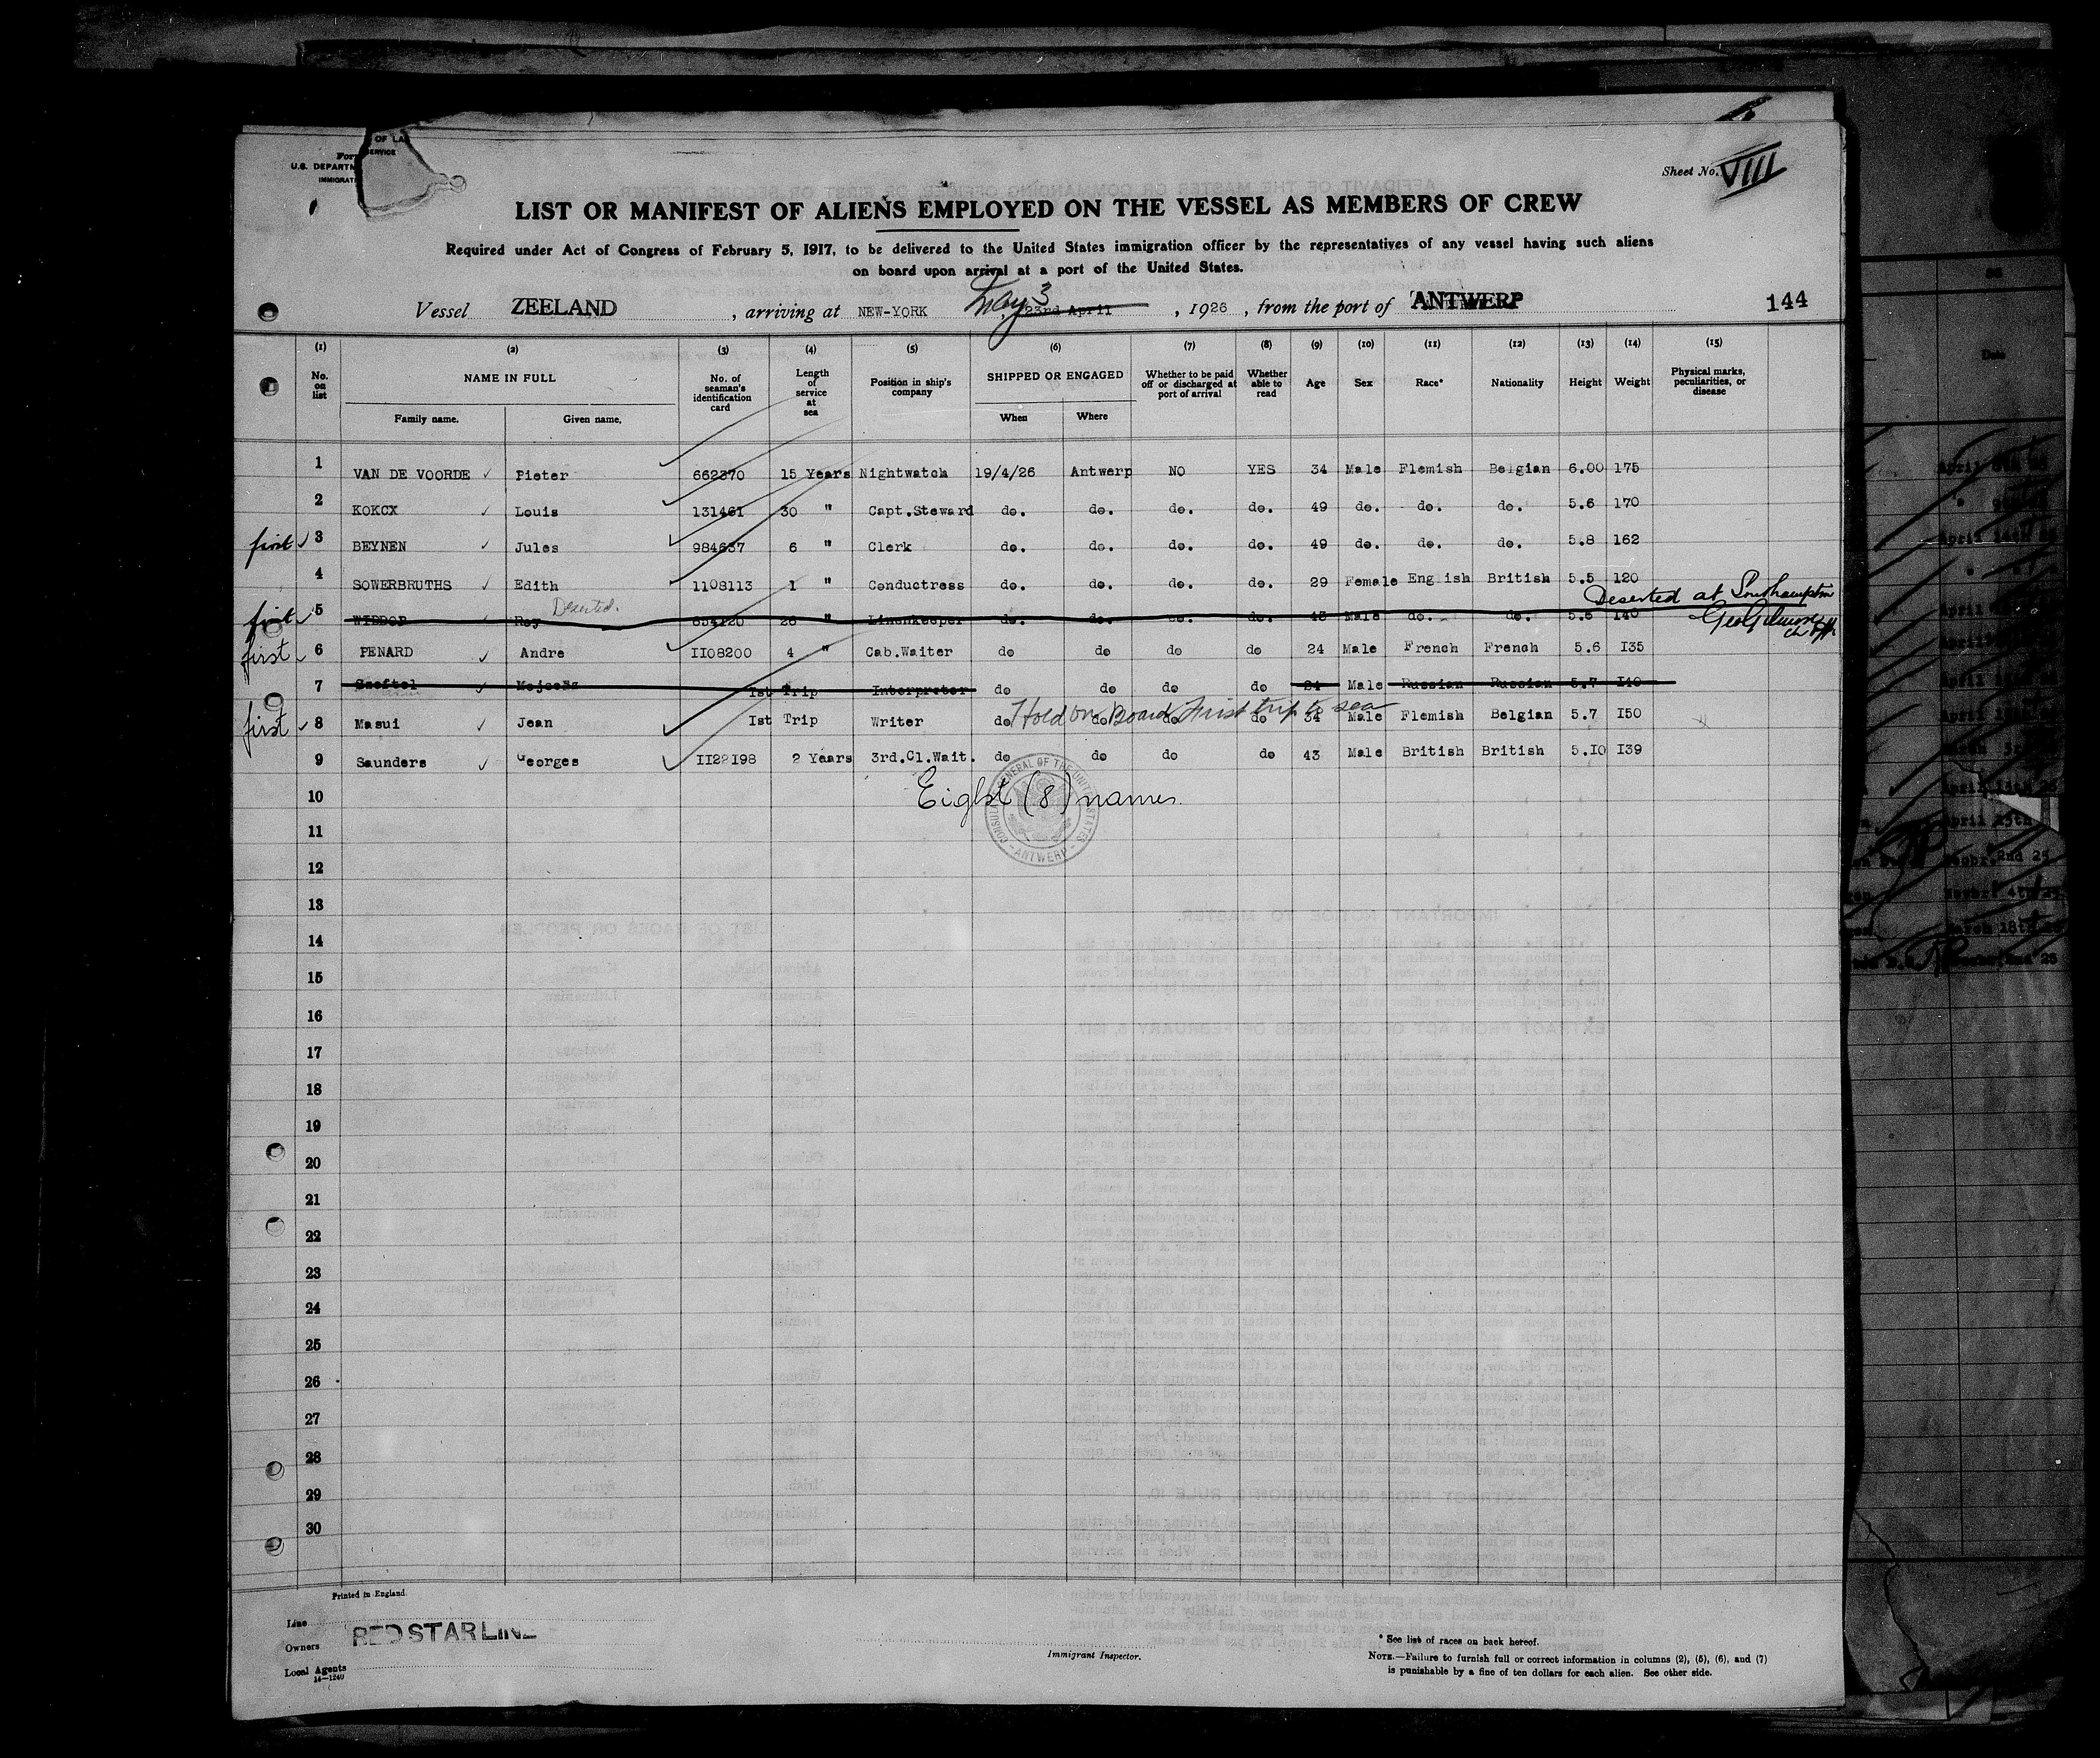 Form
U.S. DEPARTM OF LA
IMMIGRATI SERVICE
Sheet No. VIII
LIST OR MANIFEST OF ALIENS EMPLOYED ON THE VESSEL AS MEMBERS OF CREW
Required under Act of Congress of February 5, 1917, to be delivered to the United States immigration officer by the representatives of any vessel having such aliens
on board upon arrival at a port of the United States.
Vessel ZEELAND, arriving at NEW-YORK May 3 23rd April, 1926, from the port of ANTWERP 144
(1) (2) (3) (4) (5) (6) (7) (8) (9) (10) (11) (12) (13) (14) (15)
No. on list NAME IN FULL Family name. Given name. No. of seaman's identification card Length of service at sea Position in ship's company SHIPPED OR ENGAGED When Where Whether to be paid off or discharged at port of arrival Whether able to read Age Sex Race* Nationality Height Weight Physical marks, peculiarities, or disease
1 VAN DE VOORDE Pieter 662370 15 Years Nightwatch 19/4/26 Antwerp NO YES 34 Male Flemish Belgian 6.00 175
2 KOKCX Louis 131461 30 " Capt.Steward do. do. do. do. 49 do. do. do. 5.6 170
first 3 BEYNEN Jules 984637 6 " Clerk do. do. do. do. 49 do. do. do. 5.8 162
4 SOWERBRUTHS Edith 1108113 1 " Conductress do. do. do. do. 29 Female English British 5.5 120
Deserted at Southampton
Deserted.
first 5 WIDDOP Roy 654120 26 " Linenkeeper do. do. do. do. Male do. do. 5.6 140
first 6 PENARD Andre II08200 4 " Cab.Waiter do do do do 24 Male French French 5.6 I35
7 Ist Trip Interpreter do do do do 24 Male Russian Russian 5.7 I40
Hold on Board first trip to sea
first 8 Masui Jean Ist Trip Writer do do do do 34 Male Flemish Belgian 5.7 I50
9 Saunders Georges II22I98 2 Years 3rd.Cl.Wait. do do do do 43 Male British British 5.I0 I39
10 Eight (8) names.
CONSULATE GENERAL OF THE UNITED STATES
- ANTWERP -
11
12
13
14
15
16
17
18
19
20
21
22
23
24
25
26
27
28
29
30
Printed in England.
Line RED STAR LINE
Owners
Local Agents
14—1240
Immigrant Inspector.
* See list of races on back hereof.
NOTE.—Failure to furnish full or correct information in columns (2), (5), (6), and (7)
is punishable by a fine of ten dollars for each alien. See other side.
Date